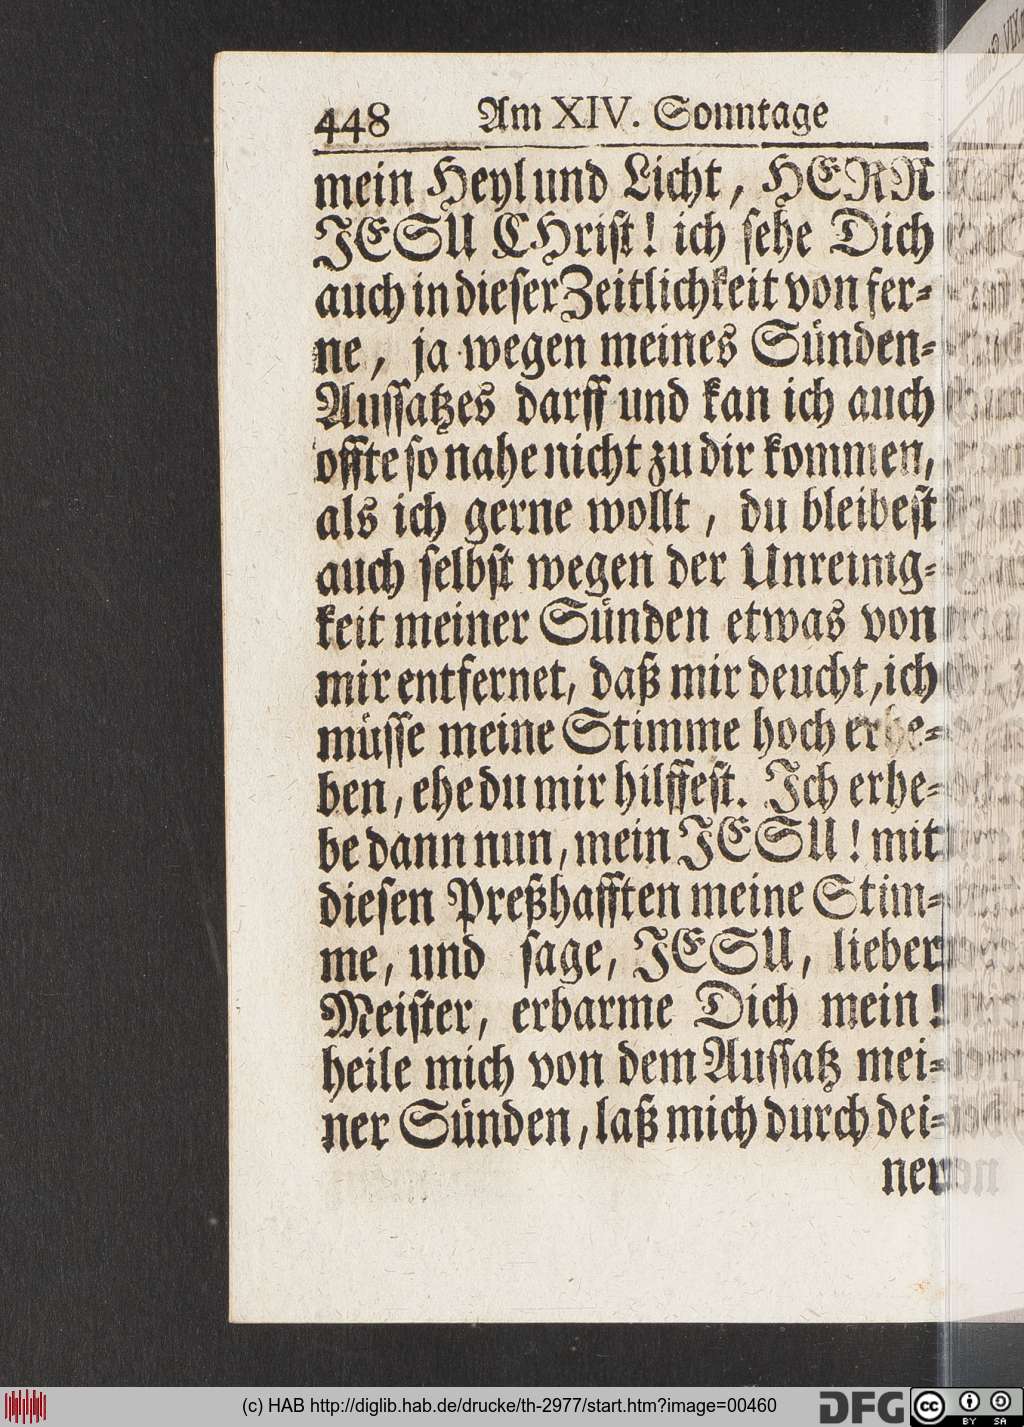 448 Am XIV. Sonntage
mein Heyl und Licht, HERR
JESU CHrist! ich sehe Dich
auch in dieser Zeitlichkeit von fer-
ne, ja wegen meines Sünden-
Aussatzes darff und kan ich auch
offte so nahe nicht zu dir kommen,
als ich gerne wollt, du bleibest
auch selbst wegen der Unreinig-
keit meiner Sünden etwas von
mir entfernet, daß mir deucht, ich
müsse meine Stimme hoch erhe-
ben, ehe du mir hilffest. Ich erhe-
be dann nun, mein JESU! mit
diesen Preßhafften meine Stim-
me, und sage, JESU, lieber
Meister, erbarme Dich mein!
heile mich von dem Aussatz mei-
ner Sünden, laß mich durch dei-
ner
(c) HAB http://diglib.hab.de/drucke/th-2977/start.htm?image=00460
DFG
cc BY SA